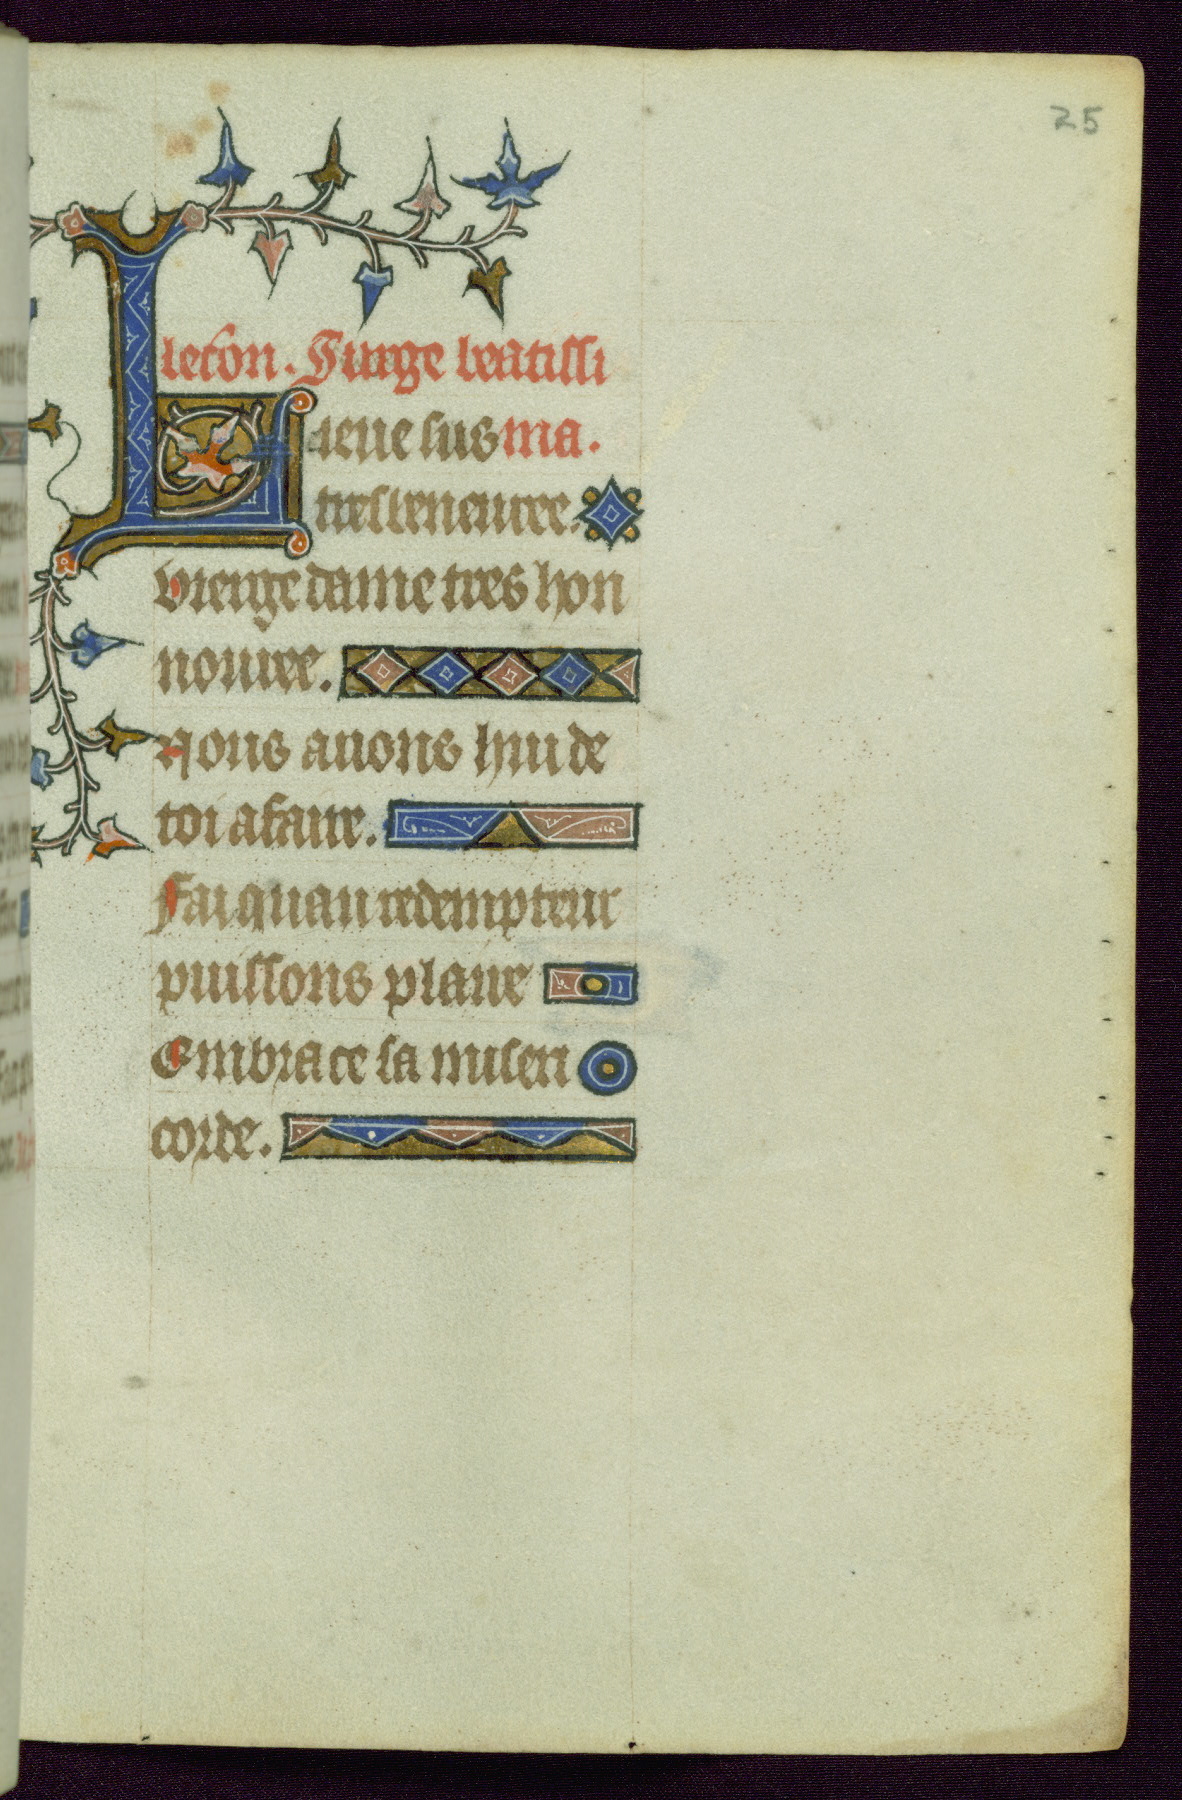 25
lecon. Surge beatissi
Lieue sus ma.
tresbeneuree.
vierge dame tres hon
nouree.
nous auons hui de
toi afaire.
Fai quau redempteur
puissons plaire
Embrace sa miseri
corde.